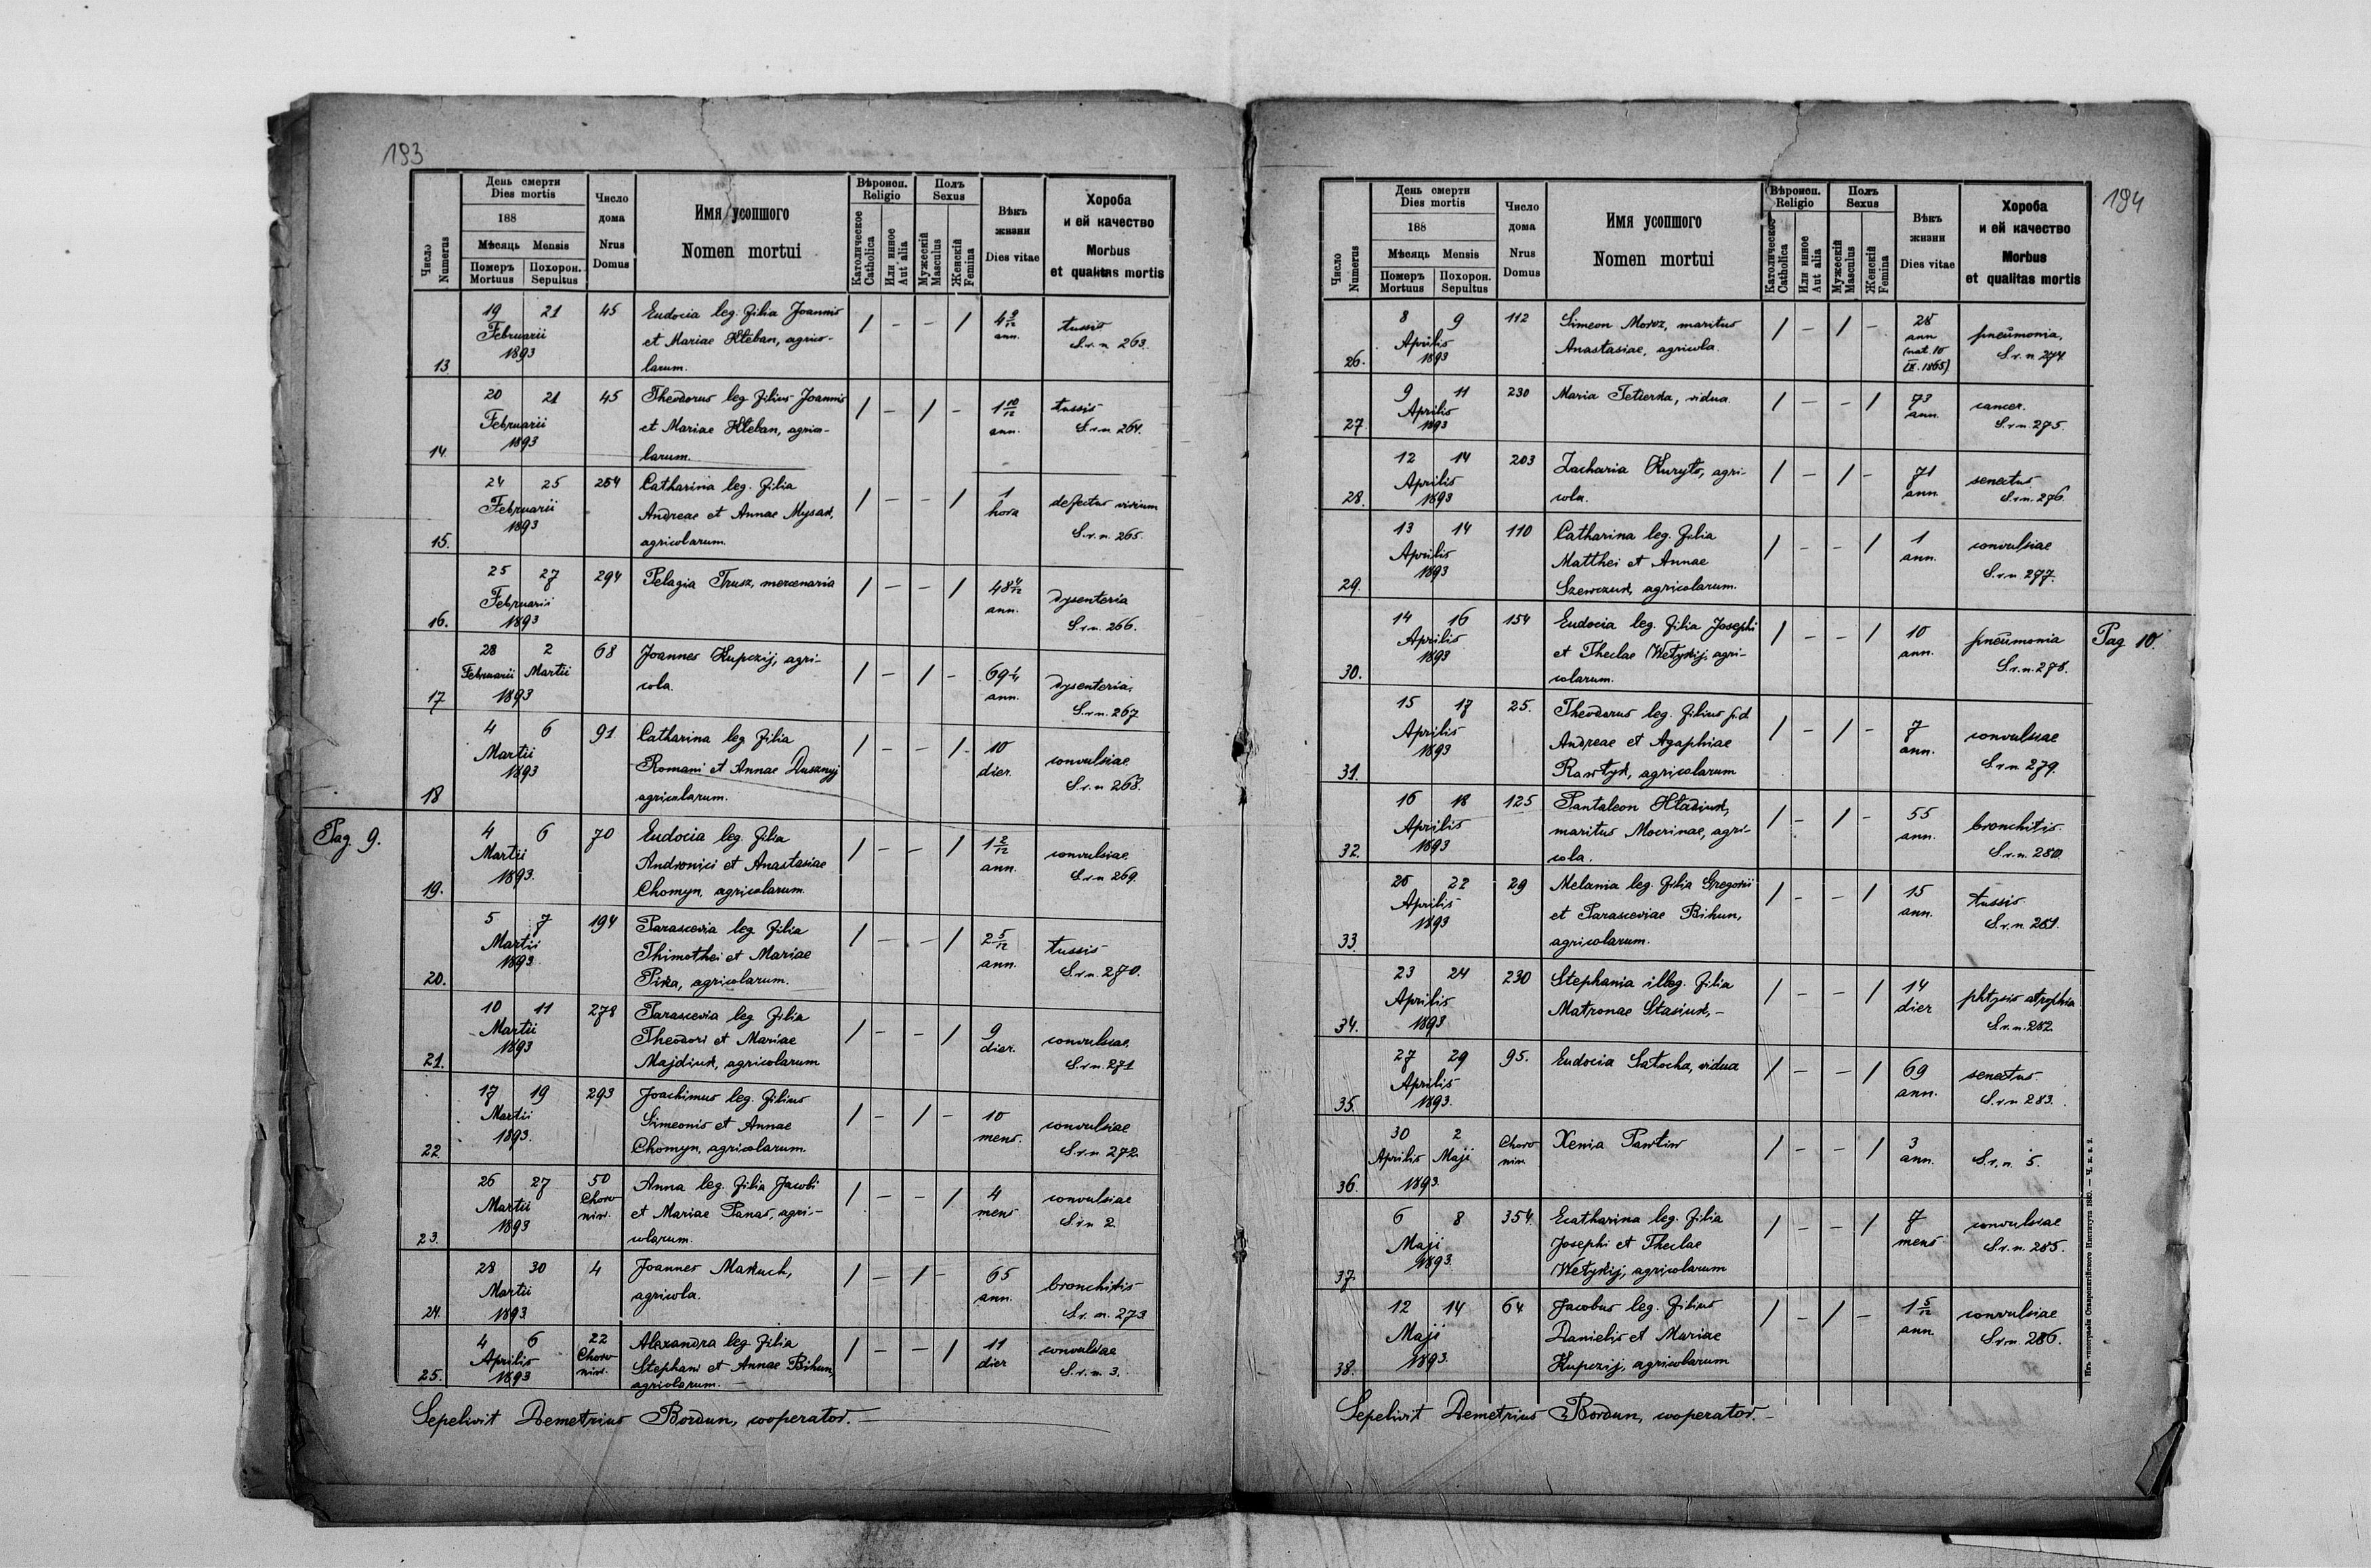 193
День смерти
Dies mortis
188
Мѣсяць Mensis
Число
Numerus
Померъ
Mortuus
Похорон.
Sepultus
Число
дома
Nrus
Domus
Имя усопшого
Nomen mortui
Вѣроисп.
Religio
Католическое
Catholica
Или инное
Aut alia
Полъ
Sexus
Мужескій
Masculus
Женскій
Femina
Вѣкъ
жизни
Dies vitae
Хороба
и ей качество
Morbus
et qualitas mortis
19 21 45 Eudocia leg. filia Joannis / – – / 4 9/12 tussis
Februarii et Mariae Hleban, agrico- ann. S.r.n. 263.
13 1893 larum.
20 21 45 Theodorus leg filius Joannis / – / – 1 10/12 tussis
Februarii et Mariae Hleban, agrico- ann. S.r.n. 264.
14. 1893 larum.
24 25 254 Catharina leg. filia / – – / 1 defectus virium
Februarii Andreae et Annae Mysak, hora
15. 1893 agricolarum. S.r.n. 265.
25 27 294 Pelagia Trusz, mercenaria / – – / 48 4/12 dysenteria
Februarii ann.
16. 1893 S.r.n. 266.
28 2 68 Joannes Kupczij, agri- / – / – 69 1/4 dysenteria,
Februarii Martii cola. ann.
17 1893 S.r.n. 267
4 6 91 Catharina leg filia / – – / 10 convulsiae
Martii Romani et Annae Dusznyj dier.
18 1893 agricolarum. S.r.n. 268.
Pag. 9.
4 6 70 Eudocia leg. filia / – – / 1 2/12 convulsiae
Martii Andronici et Anastasiae ann. S.r.n. 269.
19. 1893. Chomyn, agricolarum.
5 7 194 Parascevia leg. filia / – – / 2 5/12 tussis
Martii Thimothei et Mariae ann. S.r.n. 270.
20. 1893 Pika, agricolarum.
10 11 278 Parascevia leg filia / – – / 9 convulsiae
Martii Theodori et Mariae dier. S.r.n. 271
21. 1893 Majdiuk, agricolarum
17 19 293 Joachimus leg. filius / – / – 10 convulsiae
Martii Simeonis et Annae mens.
22. 1893. Chomyn, agricolarum. S.r.n. 272.
26 27 50 Anna leg. filia Jacobi / – – / 4 convulsiae
Martii Choro- et Mariae Panas, agri- mens S.r.n 2.
23. 1893 niw. colarum.
28 30 4 Joannes Makuch, / – / – 65 bronchitis
Martii agricola. ann.
24. 1893 S.r.n. 273
4 6 22 Alexandra leg filia / – – / 11 convulsiae
Aprilis Choro Stephani et Annae Bihun, dier S.r.n. 3.
25. 1893 niw. agricolarum.
Sepelivit Demetrius Bordun, cooperator.
194
День смерти
Dies mortis
188
Мѣсяць Mensis
Число
Numerus
Померъ
Mortuus
Похорон.
Sepultus
Число
дома
Nrus
Domus
Имя усопшого
Nomen mortui
Вѣроисп.
Religio
Католическое
Catholica
Или инное
Aut alia
Полъ
Sexus
Мужескій
Masculus
Женскій
Femina
Вѣкъ
жизни
Dies vitae
Хороба
и ей качество
Morbus
et qualitas mortis
8 9 112 Simeon Moroz, maritus / – / – 28 pneumonia,
Aprilis Anastasiae, agricola ann S.r.n 274
26. 1893 (nat. 10
IX. 1865)
9 11 230 Maria Tetierka, vidua. / – – / 73 cancer.
Aprilis ann. S.r.n. 275.
27. 1893
12 14 203 Zacharia Kuryło, agri- / – / – 71 senectus
Aprilis cola. ann. S.r.n. 276.
28. 1893
13 14 110 Catharina leg. filia / – – / 1 convulsiae
Aprilis Matthei et Annae ann.
29. 1893 Szewczuk, agricolarum. S.r.n. 277.
14 16 154 Eudocia leg. filia Josephi / – – / 10 pneumonia
Aprilis et Theclae Wełykij, agri- ann. S.r.n. 278.
30. 1893 colarum.
Pag 10.
15 17 25. Theodorus leg. filius p.d / – / – 7 convulsiae
Aprilis Andreae et Agaphiae ann.
31. 1893 Rawłyk, agricolarum S.r.n. 279.
16 18 125 Pantaleon Hładiuk, / – / – 55 bronchitis
Aprilis maritus Mocrinae, agri- ann.
32. 1893 cola. S.r.n. 280.
20 22 29 Melania leg. filia Gregorii / – – / 15 tussis
Aprilis et Parasceviae Bihun, ann. S.r.n. 281.
33. 1893 agricolarum.
23 24 230 Stephania illeg. filia / – – / 14 phtysis atrophia
Aprilis Matronae Stasiuk, – dier
34. 1893 S.r.n. 282.
27 29 95. Eudocia Sałocha, vidua / – – / 69 senectus.
Aprilis ann. S.r.n. 283.
35. 1893.
30 2 Choro Xenia Pawliw / – – / 3
Aprilis Maji niw. ann. S.r.n. 5.
36. 1893.
6 8 354. Ecatharina leg. filia / – – / 7 convulsiae
Maji Josephi et Theclae mens S.r.n. 285.
37. 1893. Wełykij, agricolarum
12 14 64 Jacobus leg. filius / – / – 1 5/12 convulsiae
Maji Danielis et Mariae ann. S.r.n. 286.
38. 1893. Kupczij, agricolarum
Sepelivit Demetrius Bordun, cooperator. –